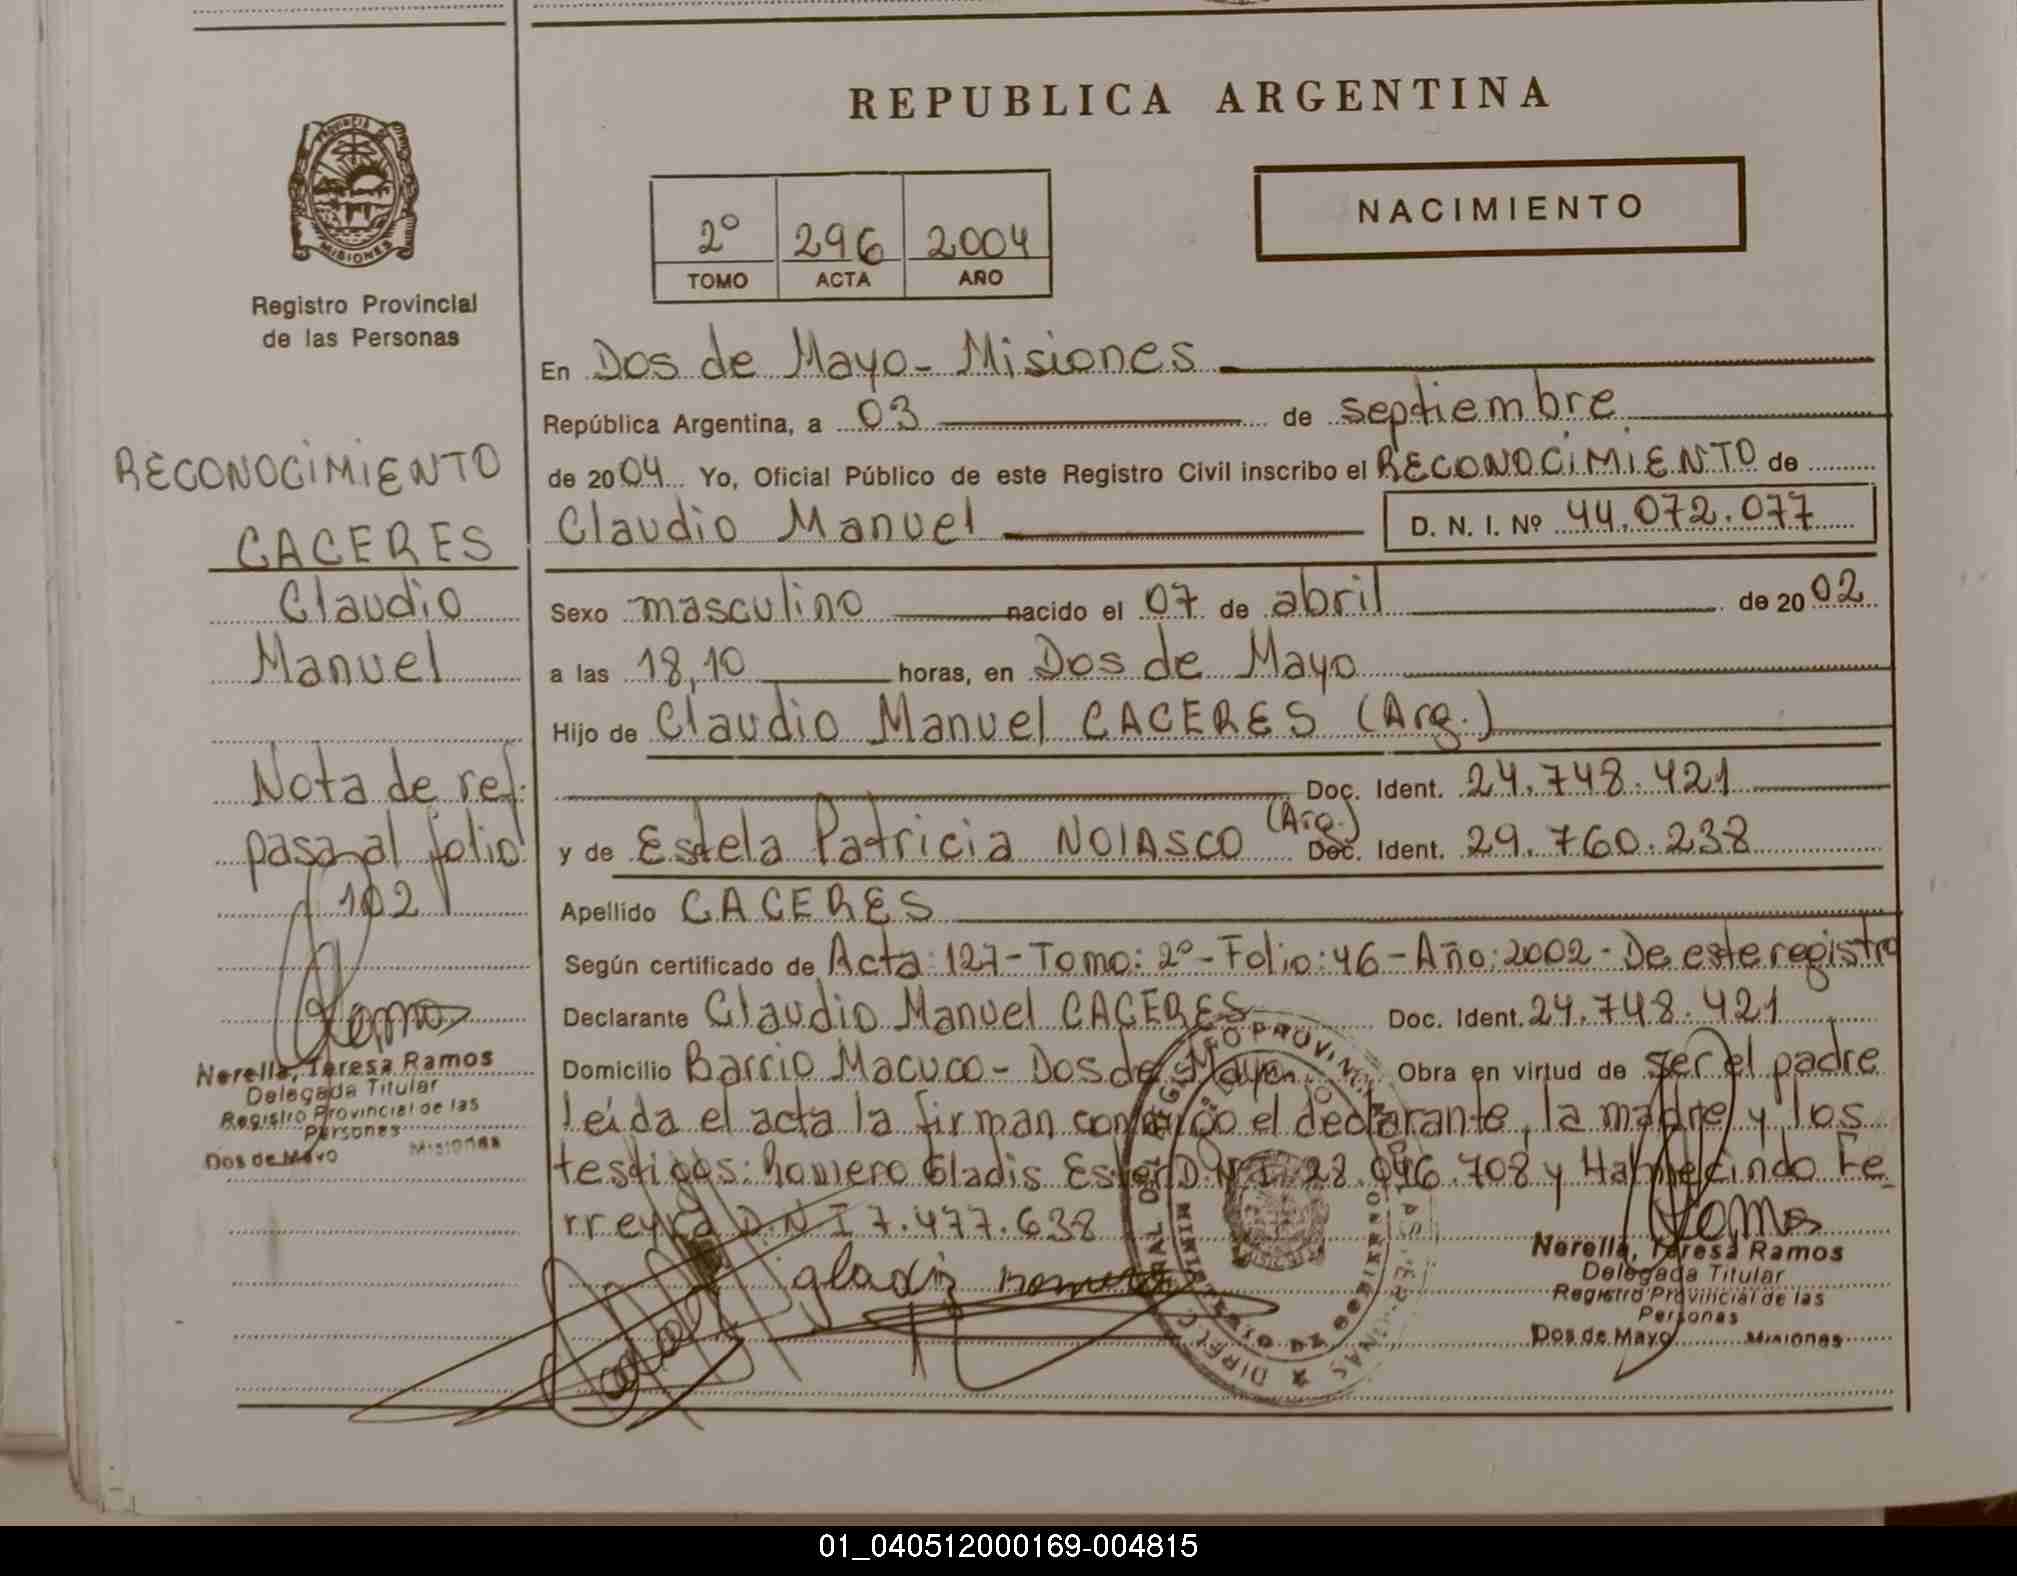 REPUBLICA ARGENTINA
NACIMIENTO
2º 296 2004
TOMO ACTA AÑO
PROVINCIA DE
MISIONES
Registro Provincial
de las Personas
RECONOCIMIENTO
CACERES
Claudio
Manuel
Nota de ref.
pasa al folio
102
Ramos
Nerella, Teresa Ramos
Delegada Titular
Registro Provincial de las
Personas
Dos de Mayo Misiones
En Dos de Mayo - Misiones
República Argentina, a 03 de septiembre
de 2004 Yo, Oficial Público de este Registro Civil inscribo el RECONOCIMIENTO de
Claudio Manuel D. N. I. Nº 44.072.077
Sexo masculino nacido el 07 de abril de 2002
a las 18,10 horas, en Dos de Mayo
Hijo de Claudio Manuel CACERES (Arg.)
Doc. Ident. 24.748.421
y de Estela Patricia NOLASCO (Arg.) Doc. Ident. 29.760.238
Apellido CACERES
Según certificado de Acta: 127 - Tomo: 2º - Folio: 46 - Año: 2002 - De este registro
Declarante Claudio Manuel CACERES Doc. Ident. 24.748.421
Domicilio Barrio Macuco - Dos de Mayo Obra en virtud de ser el padre
leída el acta la firman conmigo el declarante, la madre y los
testigos: Romero Gladis Ester D.N.I. 28.046.708 y Hahmecindo Fe
rreyra D.N I 7.477.638
gladis romero
Ramos
Nerella, Teresa Ramos
Delegada Titular
Registro Provincial de las
Personas
Dos de Mayo Misiones
01_040512000169-004815